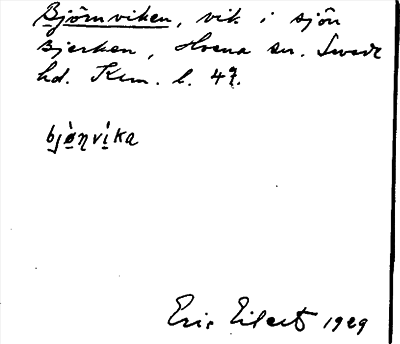 Björnviken, vik i sjön
Bjerken, Hosna sn. Sunds
hd. Km. l. 47.
bjònvìka
Eric Eilert 1929